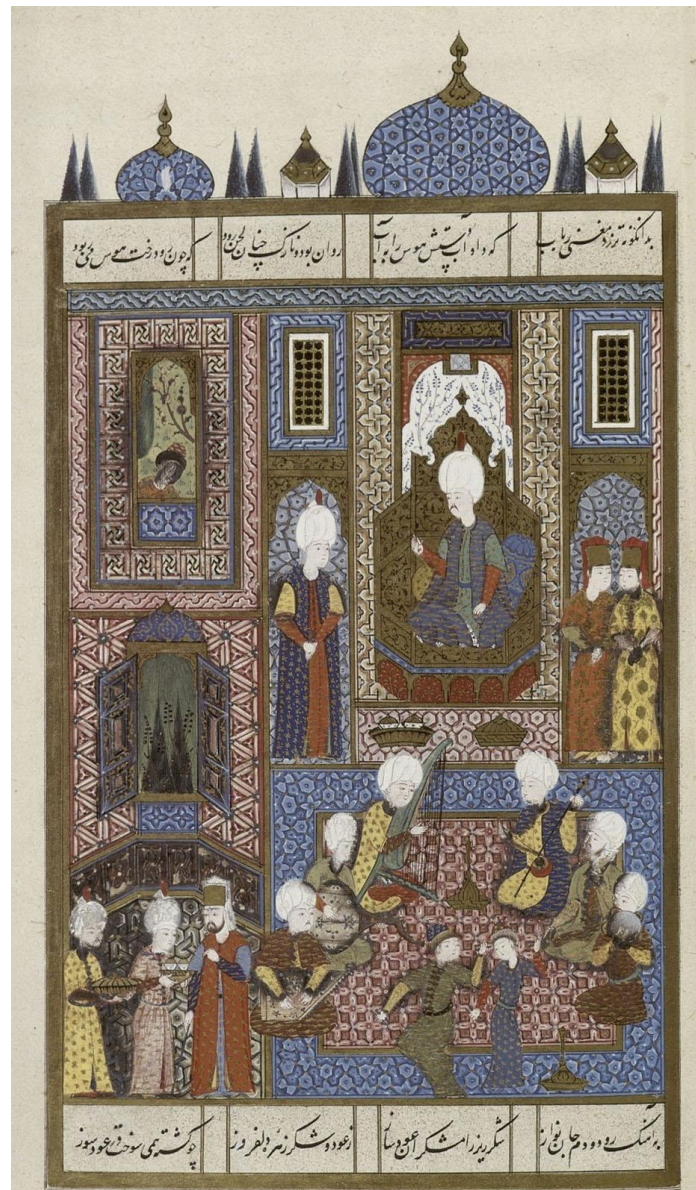 بدانگونه تر زد مغنی رباب که داد آب هوس را به آب روان بود نازک چنان لحن رود که چون رود رخت هوس می ربود
به آهنگ رود و دم جان نواز شکرریز رامشگران عود ساز ز عود و شکر دلفروز همی سوخت عود سوز